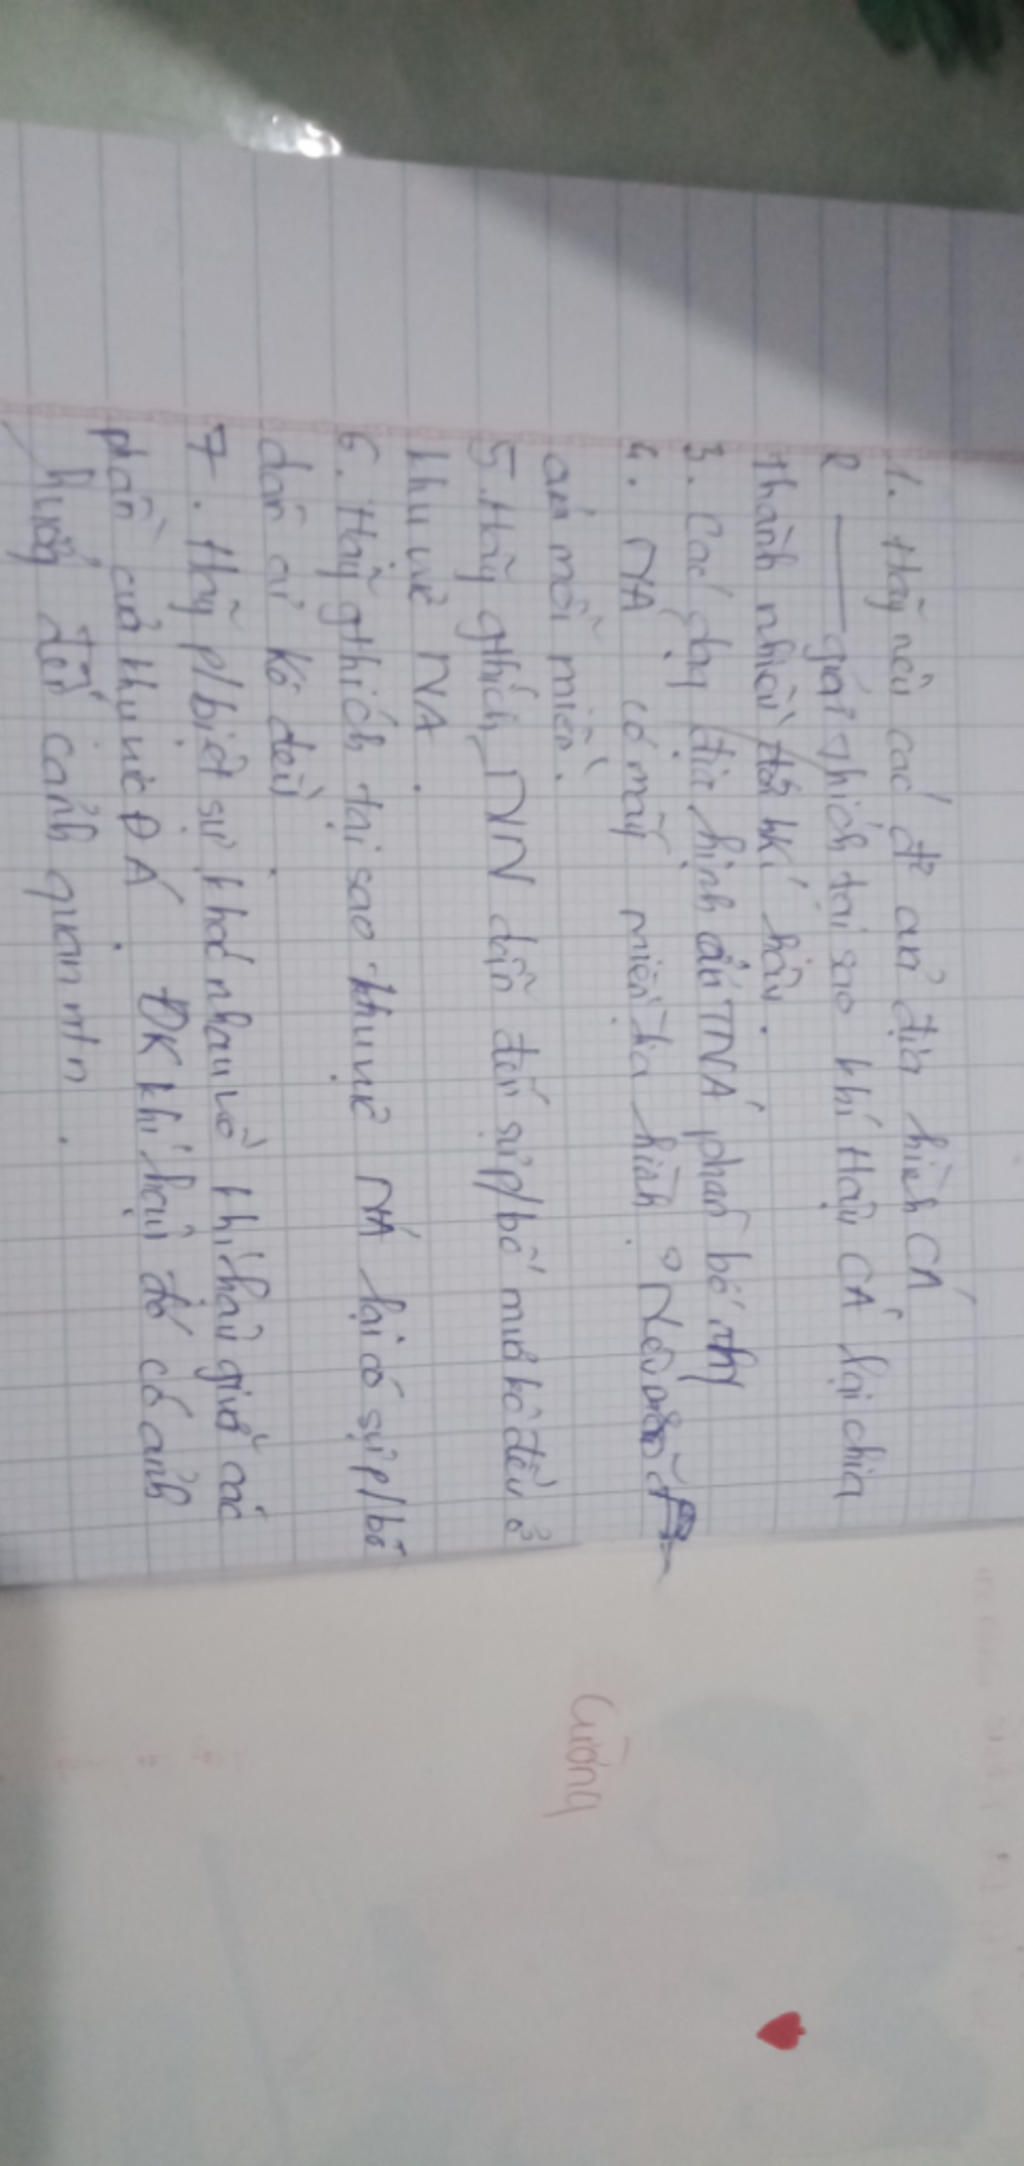 1. Hãy nêu các đ² của địa hình CÁ
2 —— giải thích tại sao khí Hậu CÁ lại chia
thành nhiều đới khí hậu.
3. Các dạng địa hình của TNÁ phân bố ntn
4. NÁ có mấy miền địa hình? Nêu đ²
của mỗi miền.
5. Hãy gthích NN dẫn đến sự p/bố mưa kô đều ở
khu vực NÁ.
6. Hãy gthích tại sao khu vực NÁ lại có sự p/bố
dân cư kô đều.
7. Hãy p/biệt sự khác nhau về khí hậu giữa các
phần của khu vực ĐÁ. ĐK khí hậu đó có ảnh
hưởng đến cảnh quan ntn.
Cường